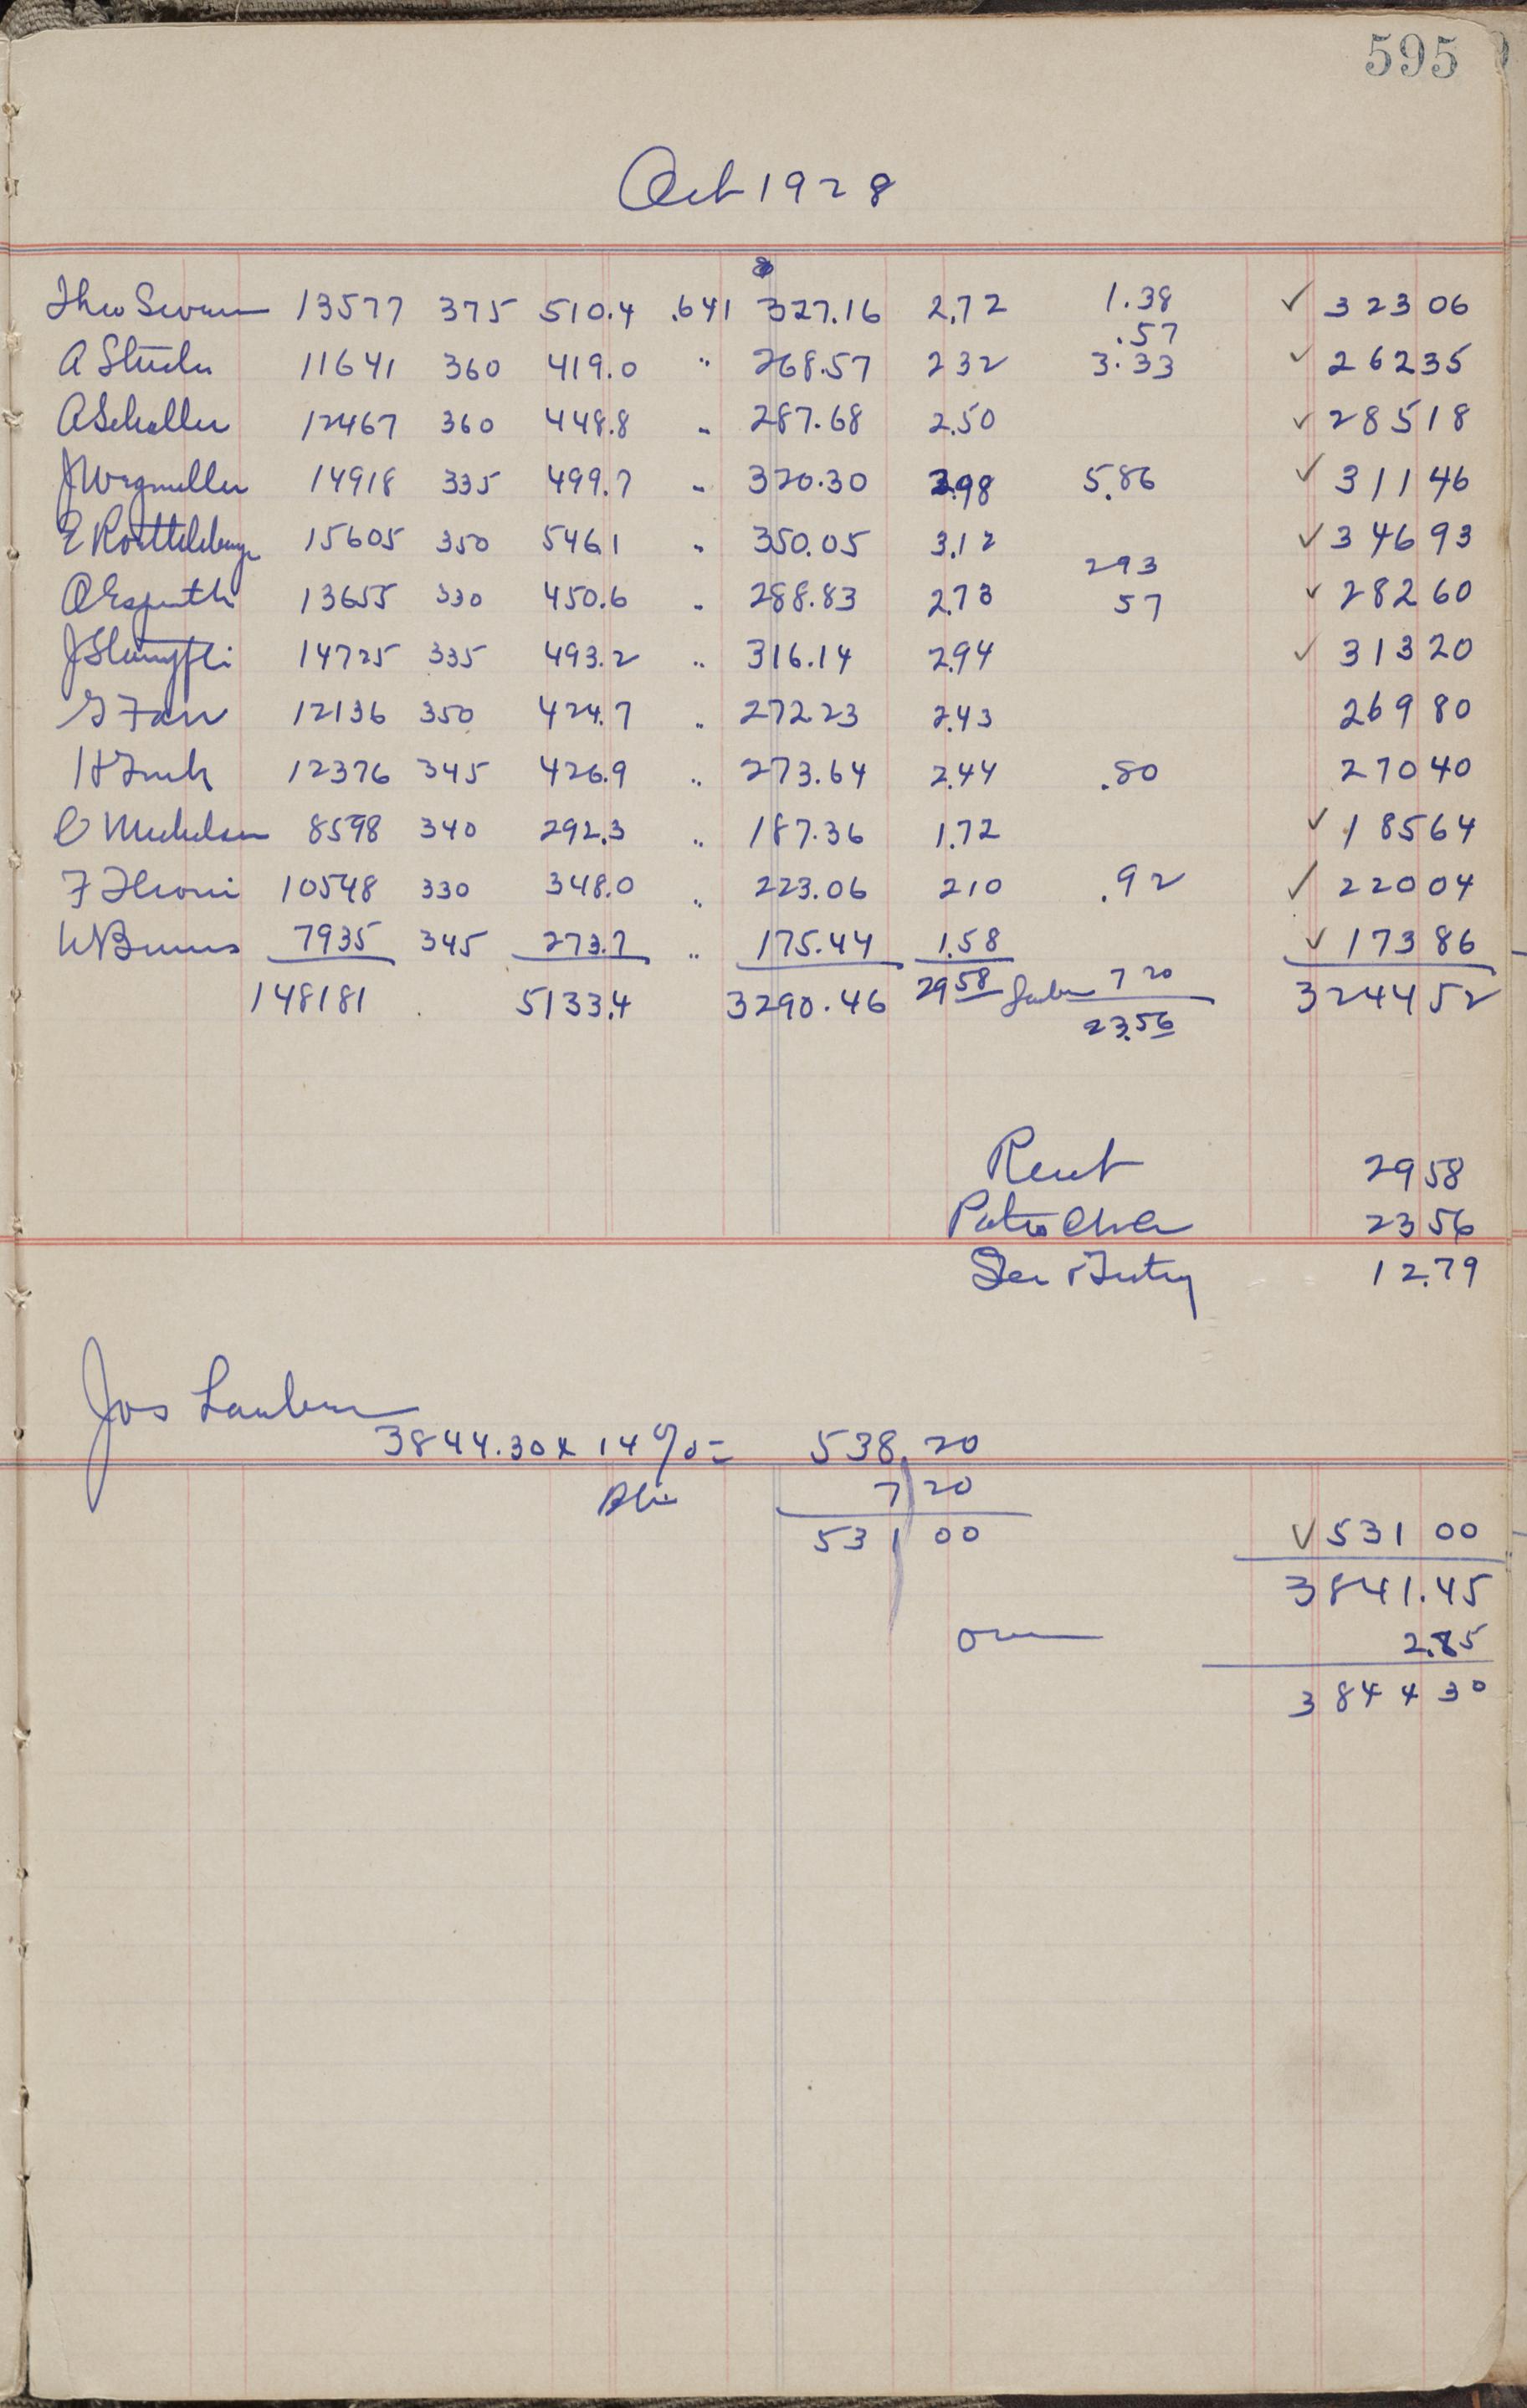 595
Oct 1928
Theo Swan 13577 375 510.4 .641 327.16 2.72 1.38 ✓ 323 06
.57
A Studer 11641 360 419.0 " 268.57 2 32 3.33 ✓ 262 35
A Scholler 12467 360 448.8 " 287.68 2.50 ✓ 285 18
J Wegmuller 14918 335 499.7 " 320.30 2.98 5.86 ✓ 311 46
E Roettelberger 15605 350 546.1 " 350.05 3.12 ✓ 346 93
2 93
13655 330 450.6 " 288.83 2.73 57 ✓ 282 60
14725 335 493.2 " 316.14 2.94 ✓ 313 20
12136 350 424.7 " 272.23 2.43 269 80
12376 345 426.9 " 273.64 2.44 .80 270 40
8598 340 292.3 " 187.36 1.72 ✓ 185 64
10548 330 348.0 " 223.06 2 10 .92 ✓ 220 04
W Burns 7935 345 273.7 " 175.44 1.58 ✓ 173 86
148181 5133.4 3290.46 29 58 Lauber 7 20 3244 52
23.56
Rent 29 58
23 56
12.79
Jos Lauber
3844.30 x 14 % = 538.20
7 20
531 00 ✓ 531 00
3841.45
Over 2.85
3844 30